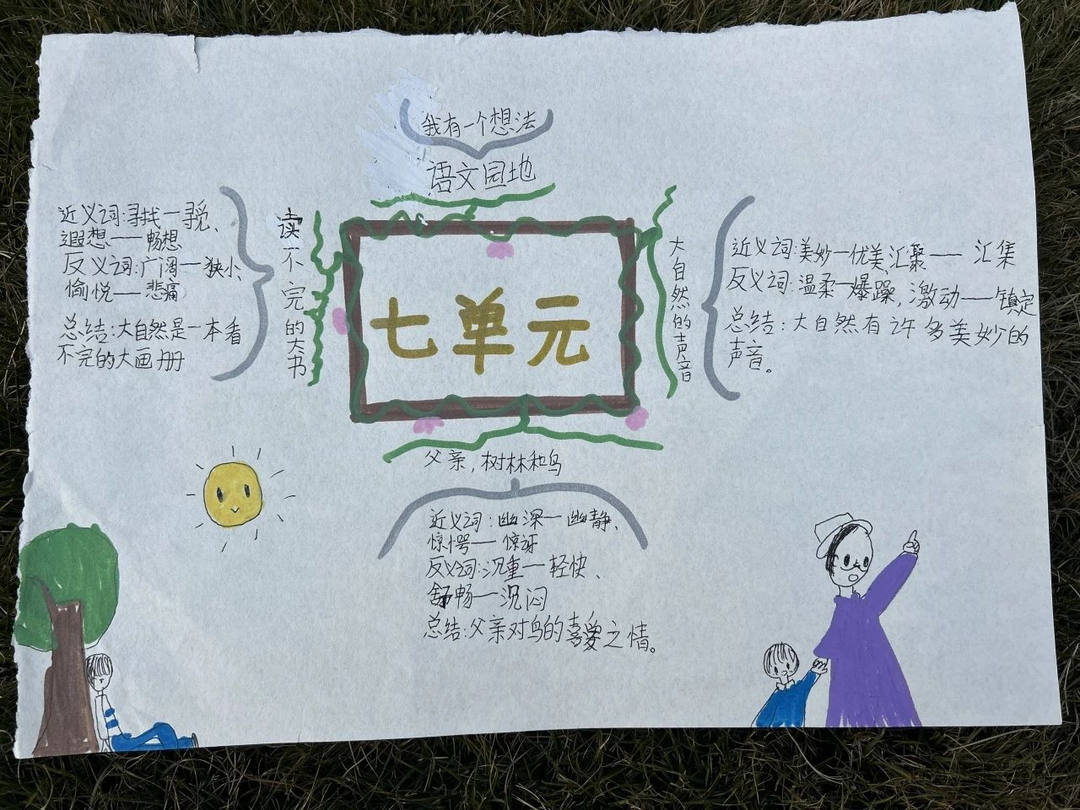 我有一个想法
语文园地
读不完的大书
近义词:寻找一寻觅、
遐想——畅想
反义词:广阔一狭小
愉悦——悲痛
总结:大自然是一本看
不完的大画册
七单元
大自然的声音
近义词:美妙一优美,汇聚——汇集
反义词:温柔一爆躁,激动——镇定
总结:大自然有许多美妙的
声音。
父亲,树林和鸟
近义词:幽深一幽静、
惊愕——惊讶
反义词:沉重一轻快、
舒畅一沉闷
总结:父亲对鸟的喜爱之情。